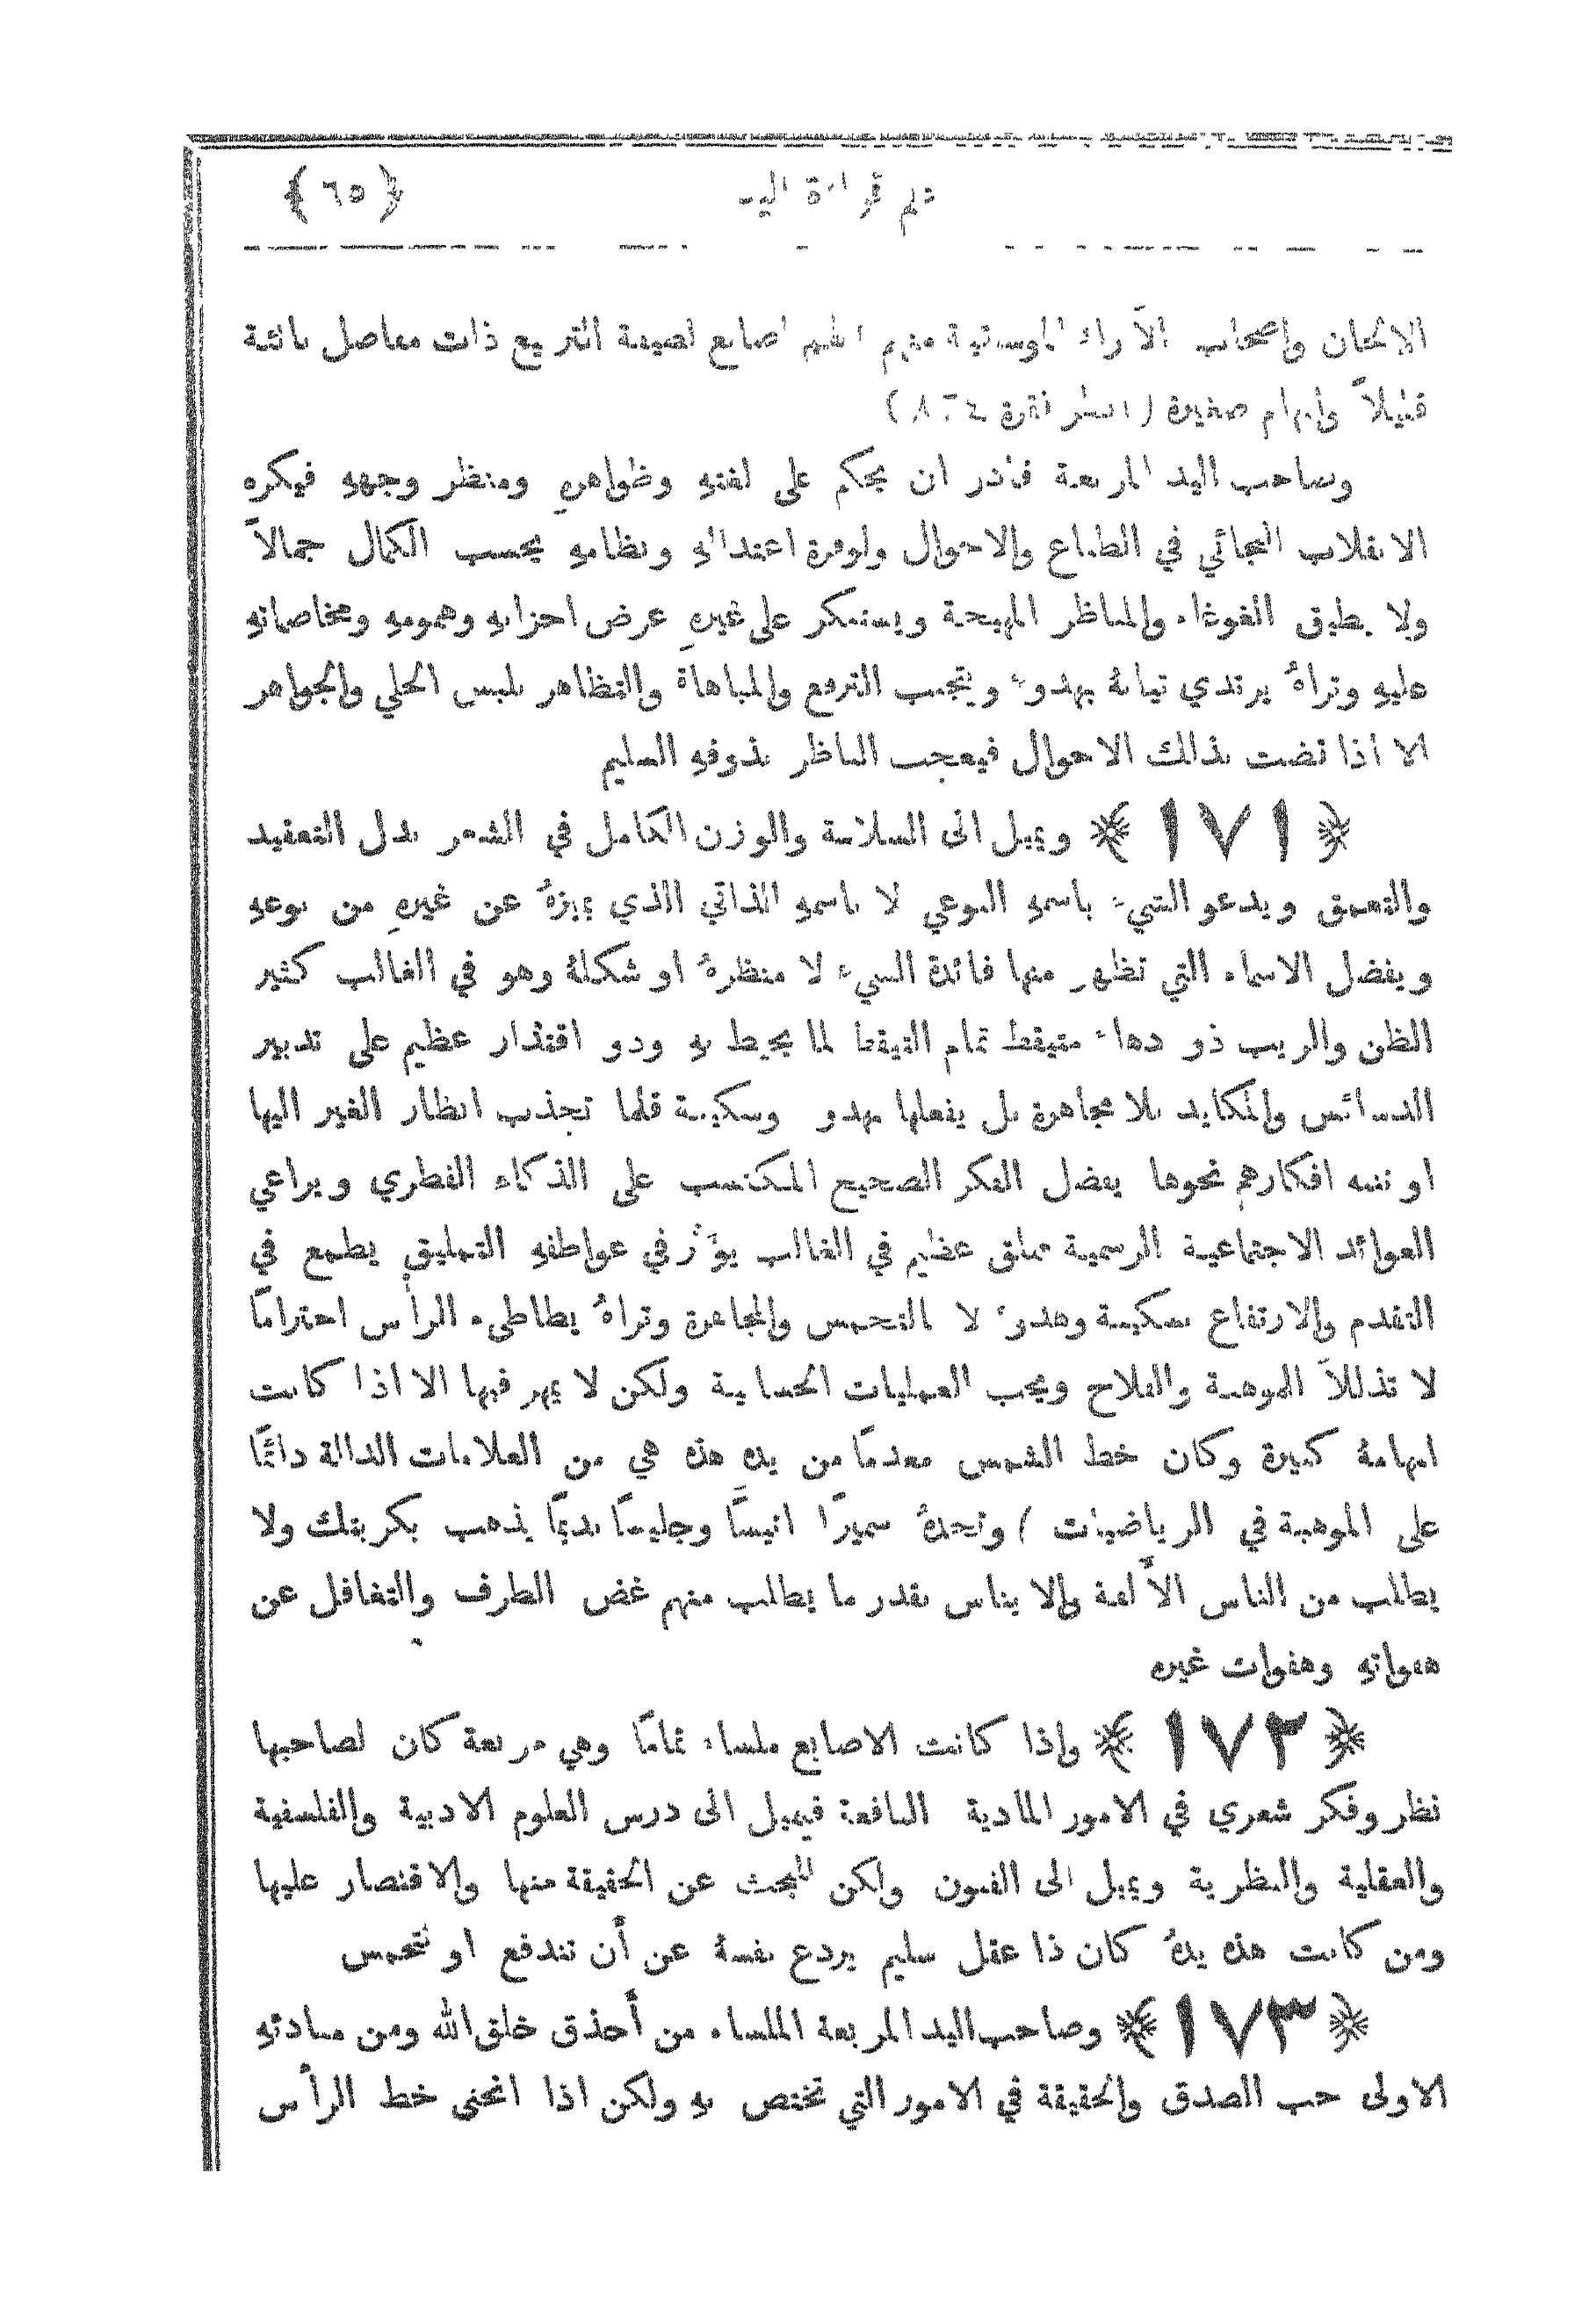 علم قراءة اليد ﴿٦٥﴾
الالحان واصحاب الآراء الموسيقية منهم لهم اصابع لطيفة التربيع ذات مفاصل ناتئة
قليلاً وابهام صغيرة (انظر فقرة
وصاحب اليد المربعة قادر ان يحكم على لفتهِ وظواهرهِ ومنظر وجههِ فيكره
الانقلاب الفجائي في الطباع والاحوال ولوفرة اعتدالهِ ونظامهِ يحسب الكمال جمالاً
ولا يطيق الغوغاء والمناظر المهيجة ويستنكر على غيرهِ عرض احزانهِ وهمومهِ ومخاصماتهِ
عليهِ وتراهُ يرتدي ثيابهُ بهدوء ويتجنب الترفع والمباهاة والتظاهر بلبس الحلي والجواهر
الا اذا قضت بذلك الاحوال فيعجب الناظر بذوقهِ السليم
﴿١٧١﴾ ويميل الى السلاسة والوزن الكامل في الشعر بدل التعقيد
والتعمق ويدعو الشيء باسمهِ النوعي لا باسمهِ الذاتي الذي يميزهُ عن غيرهِ من نوعهِ
ويفضل الاسماء التي تظهر منها فائدة الشيء لا منظرهُ او شكلهُ وهو في الغالب كثير
الظن والريب ذو دهاء متيقظ تمام التيقظ لما يحيط بهِ وذو اقتدار عظيم على تدبير
الدسائس والمكايد بلا مجاهرة بل يفعلها بهدو وسكينة قلما تجذب انظار الغير اليها
او تنبه افكارهم نحوها يفضل الفكر الصحيح المكتسب على الذكاء الفطري ويراعي
العوائد الاجتماعية الرسمية مملق عظيم في الغالب يؤثر في عواطفهِ التمليق يطمع في
التقدم والارتفاع بسكينة وهدوء لا بالتحمس والمجاهرة وتراهُ يطاطىء الرأس احتراماً
لا تذللاً للموهبة والفلاح ويحب العمليات الحسابية ولكن لا يمهر فيها الا اذا كانت
ابهامهُ كبيرة وكان خط الشمس معدماً من يدهِ هذه هي من العلامات الدالة دائماً
على الموهبة في الرياضيات ) وتجدهُ سميراً انيساً وجليساً نديماً يذهب بكربتك ولا
يطلب من الناس الأُلفة والايناس بقدر ما يطلب منهم غض الطرف والتغافل عن
هفواتهِ وهفوات غيره
﴿١٧٢﴾ واذا كانت الاصابع ملساء تماماً وهي مربعة كان لصاحبها
نظر وفكر شعري في الامور المادية النافعة فيميل الى درس العلوم الادبية والفلسفية
والعقلية والنظرية ويميل الى الفنون ولكن للبحث عن الحقيقة منها والاقتصار عليها
ومن كانت هذه يدهُ كان ذا عقل سليم يردع نفسهُ عن أن تندفع او تتحمس
﴿١٧٣﴾ وصاحب اليد المربعة الملساء من أحذق خلق الله ومن مبادئهِ
الاولى حب الصدق والحقيقة في الامور التي تختص بهِ ولكن اذا انحنى خط الرأس